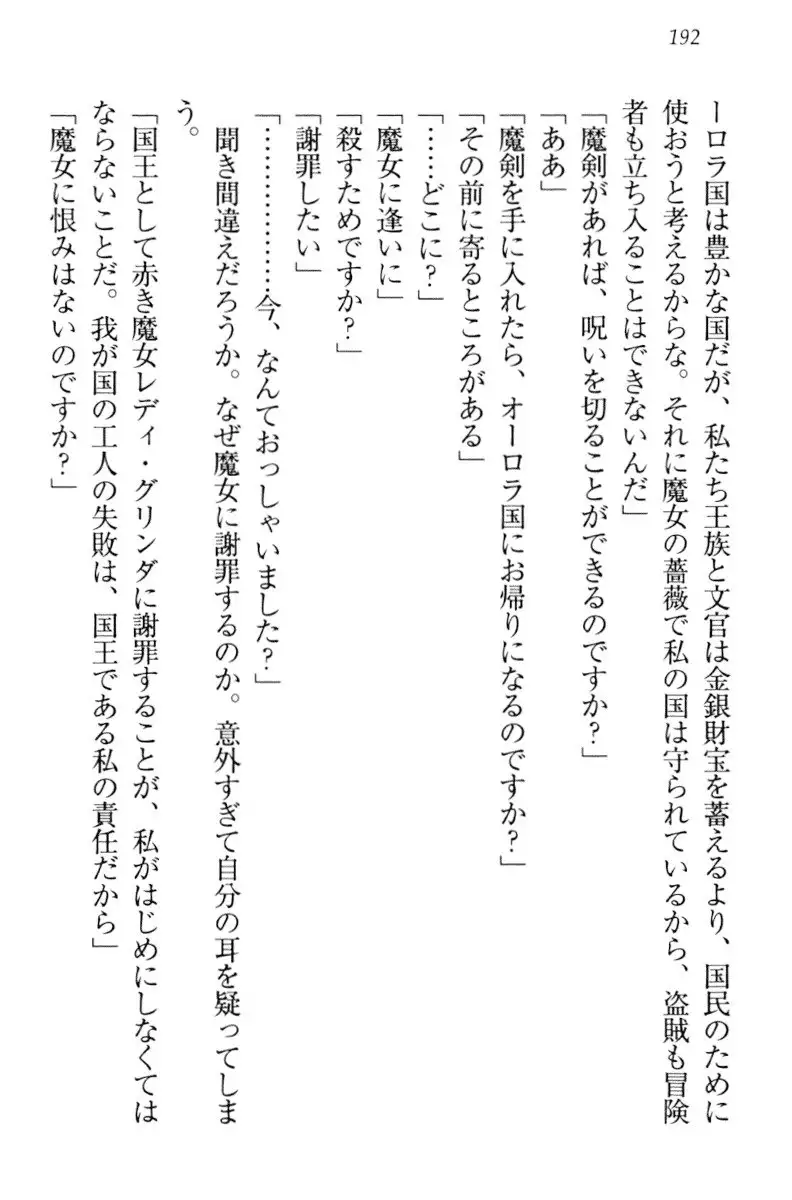 192
ーロラ国は豊かな国だが、私たち王族と文官は金銀財宝を蓄えるより、国民のために
使おうと考えるからな。それに魔女の薔薇で私の国は守られているから、盗賊も冒険
者も立ち入ることはできないんだ」
「魔剣があれば、呪いを切ることができるのですか?」
「ああ」
「魔剣を手に入れたら、オーロラ国にお帰りになるのですか?」
「その前に寄るところがある」
「……どこに?」
「魔女に逢いに」
「殺すためですか?」
「謝罪したい」
「………………今、なんておっしゃいました?」
聞き間違えだろうか。なぜ魔女に謝罪するのか。意外すぎて自分の耳を疑ってしま
う。
「国王として赤き魔女レディ・グリンダに謝罪することが、私がはじめにしなくては
ならないことだ。我が国の工人の失敗は、国王である私の責任だから」
「魔女に恨みはないのですか?」